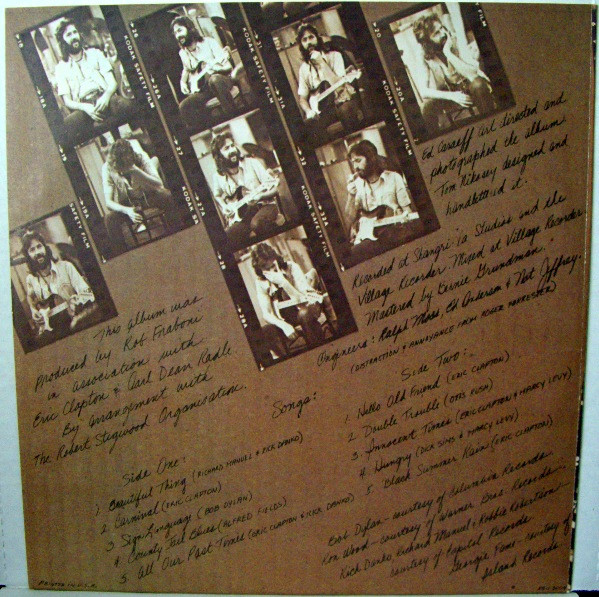 KODAK SAFETY FILM
KODAK SAFETY FILM
KODAK SAFETY FILM
KODAK SAFETY FILM
KODAK SAFETY FILM
Ed Caraeff art directed and
photographed the album.
Tom Nikosey designed and
handlettered it.
Recorded at Shangri-la Studios and the
Village Recorder. Mixed at Village Recorder
Mastered by Bernie Grundman.
Engineers: Ralph Moss, Ed Anderson & Nat Jeffrey.
(EXTRACTION & ANNOYANCE FROM ROGER FORRESTER)
This album was
Produced by Rob Fraboni
in association with
Eric Clapton & Carl Dean Radle.
By arrangement with
The Robert Stigwood Organisation.
Songs:
Side One:
1 Beautiful Thing (RICHARD MANUEL & RICK DANKO)
2 Carnival (ERIC CLAPTON)
3 Sign Language (BOB DYLAN)
4 County Jail Blues (ALFRED FIELDS)
5 All Our Past Times (ERIC CLAPTON & RICK DANKO)
Side Two:
1 Hello Old Friend (ERIC CLAPTON)
2 Double Trouble (OTIS RUSH)
3 Innocent Times (ERIC CLAPTON & MARCY LEVY)
4 Hungry (DICK SIMS & MARCY LEVY)
5 Black Summer Rain (ERIC CLAPTON)
Bob Dylan - courtesy of Columbia Records.
Ron Wood - courtesy of Warner Bros. Records.
Rick Danko, Richard Manuel & Robbie Robertson
courtesy of Capitol Records
Georgie Fame - courtesy of
Island Records